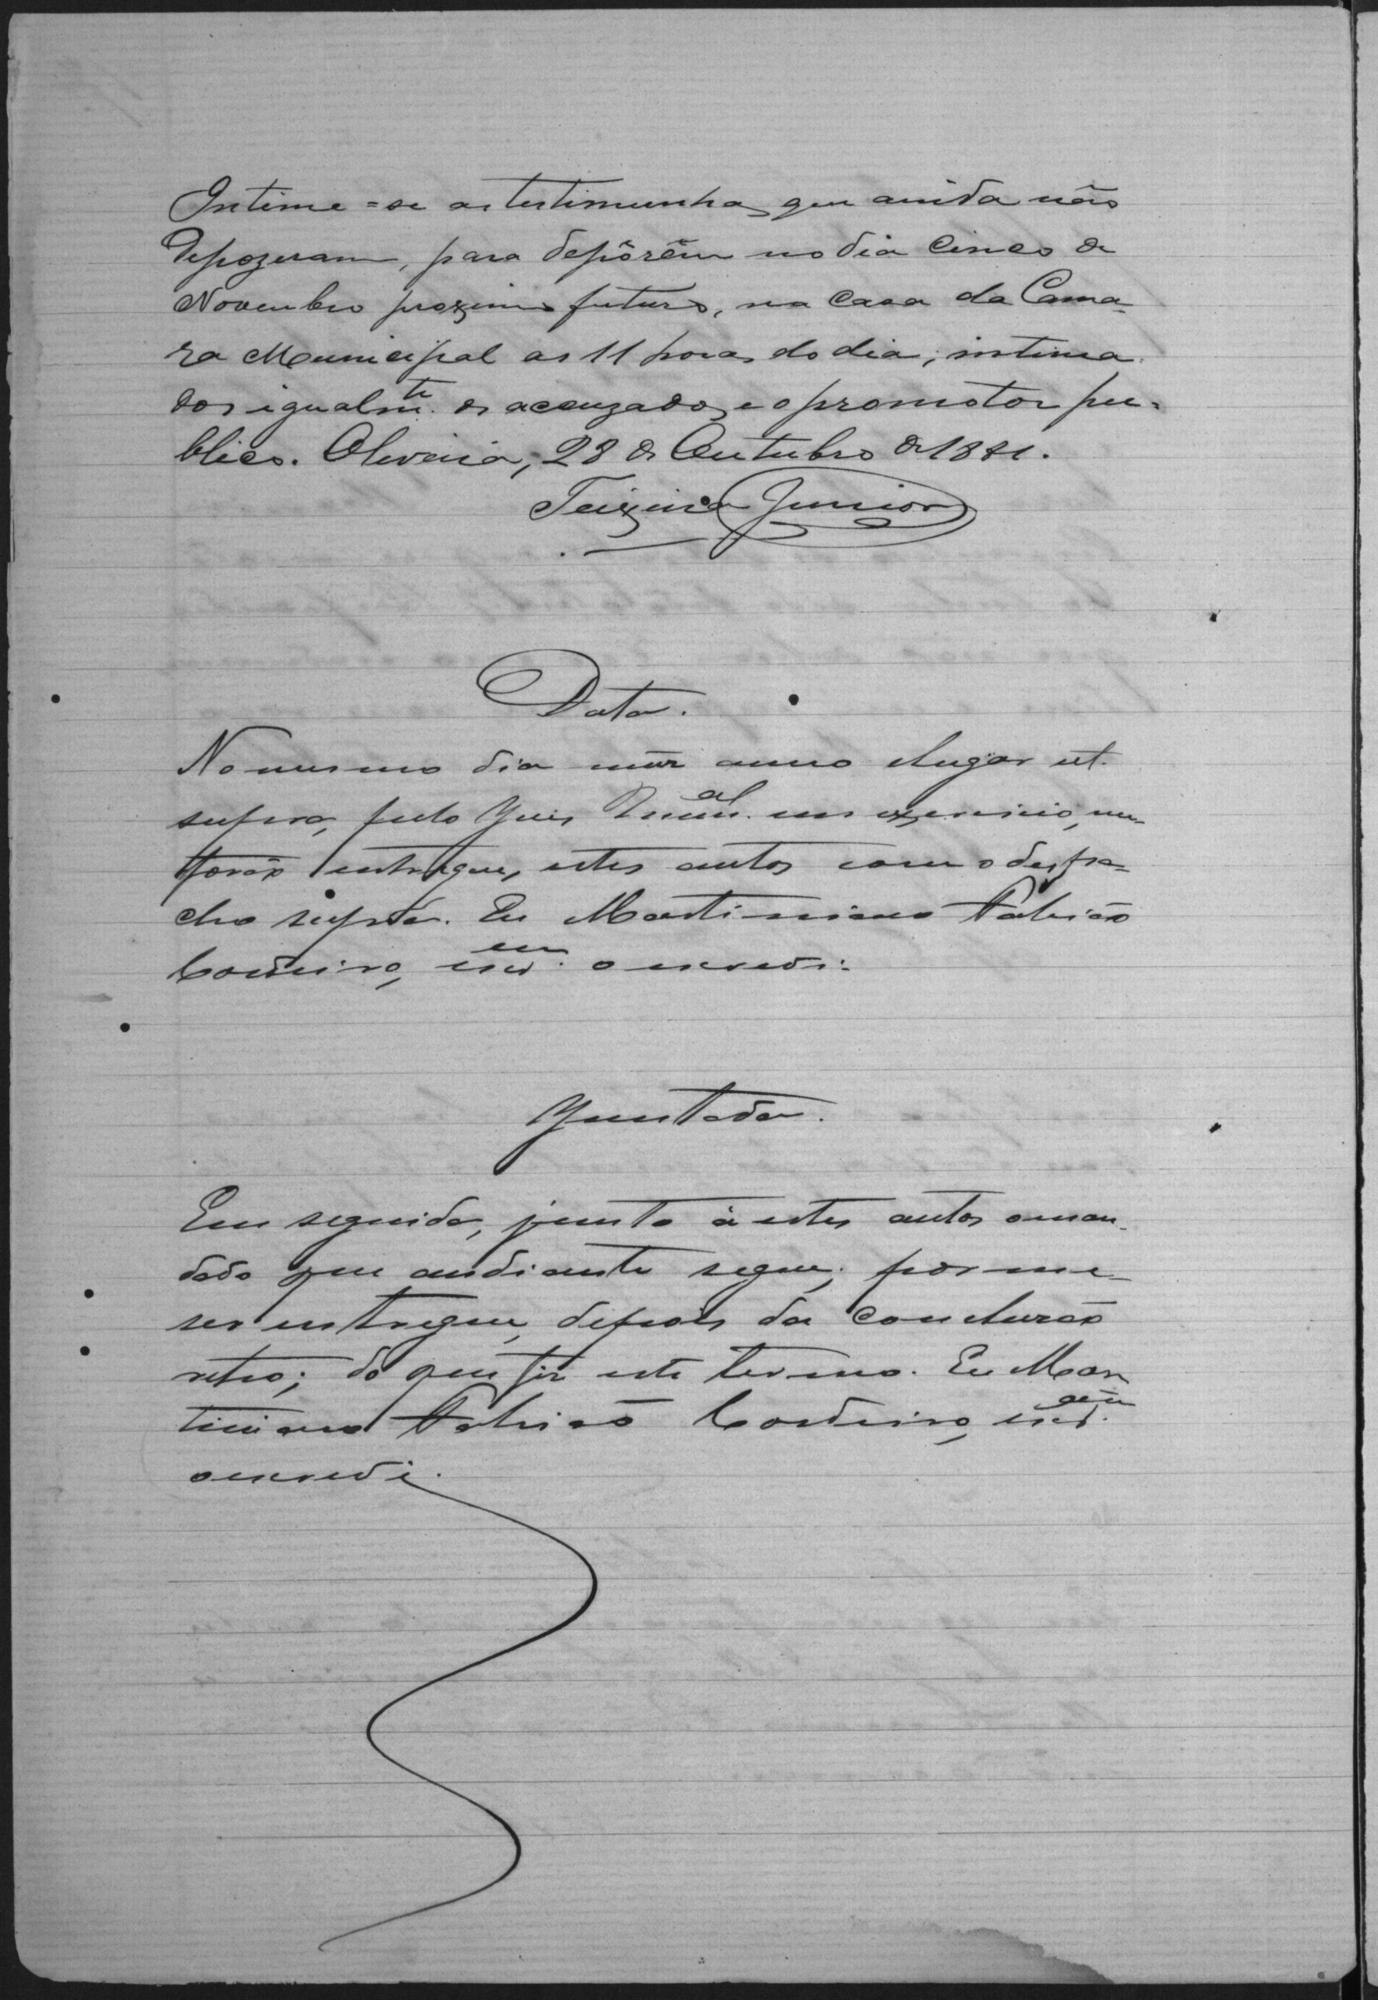 Intime=se as testimunhas que ainda não
depozeram, para depôrêm no dia cinco de
Novembro proximo futuro, na casa da Cama-
ra Municipal as 11 horas do dia; intima
dos igualmte. os acuzados, e o promotor pu-
blico. Oliveira, 28 de Outubro de 1881.
Teixeira Junior
Data.
No mesmo dia mez anno elugar ut
supra, pelo Juiz Munal. em exercicio, me
forão entregues, estes autos com o despa-
cho supra. Eu Martiniano
Cordeiro, escrm. o escrevi:
Juntada.
Em seguida, junto á estes autos o man-
dado que andiante segue; por me-
ser entregue, depois da conclusão
retro; do que fiz este termo. Eu Mar
tiniano Cordeiro,
o escrevi.